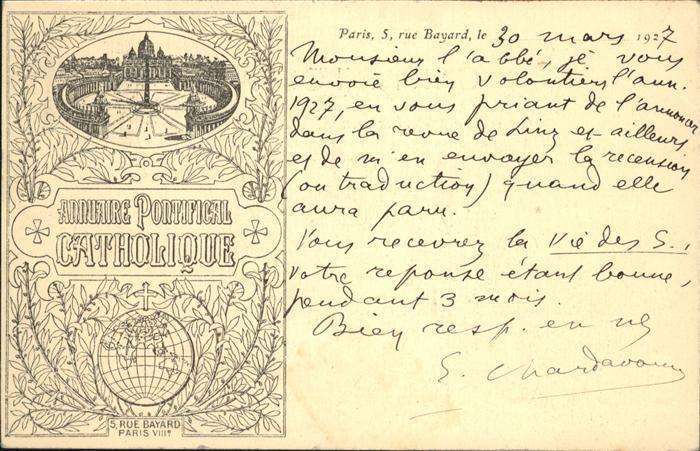 ANNUAIRE PONTIFICAL
CATHOLIQUE
5, RUE BAYARD
PARIS VIIIe
Paris, 5, rue Bayard, le 30 mars 1927
Monsieur l'abbé, je vous
envoie bien volontiers l'ann.
1927, en vous priant de l'annoncer
dans la revue de Linz et ailleurs
et de m'en envoyer la recension
(ou traduction) quand elle
aura paru.
Vous recevrez la Vie des S.,
votre reponse étant bonne,
pendant 3 mois.
Bien resp. en